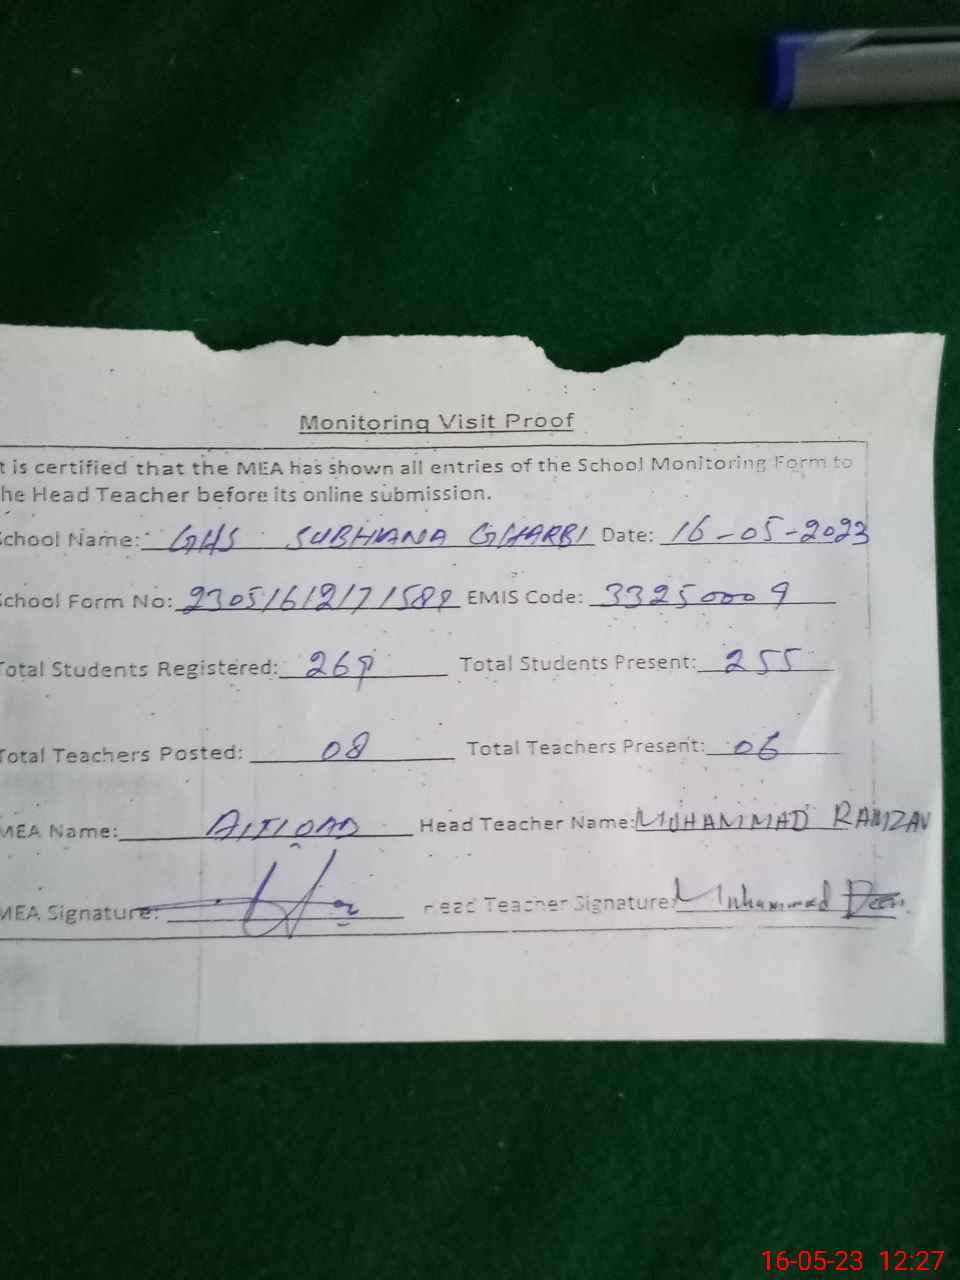 Monitoring Visit Proof
t is certified that the MEA has shown all entries of the School Monitoring Form to
he Head Teacher before its online submission.
chool Name: GHS SUBHANA GHARBI Date: 16-05-2023
chool Form No: EMIS Code: 33250009
Total Students Registered: 269 Total Students Present: 255
Total Teachers Posted: 08 Total Teachers Present: 06
MEA Name: Head Teacher Name: MUHAMMAD RAMZAN
MEA Signature: Head Teacher Signature: Muhammad
16-05-23 12:27